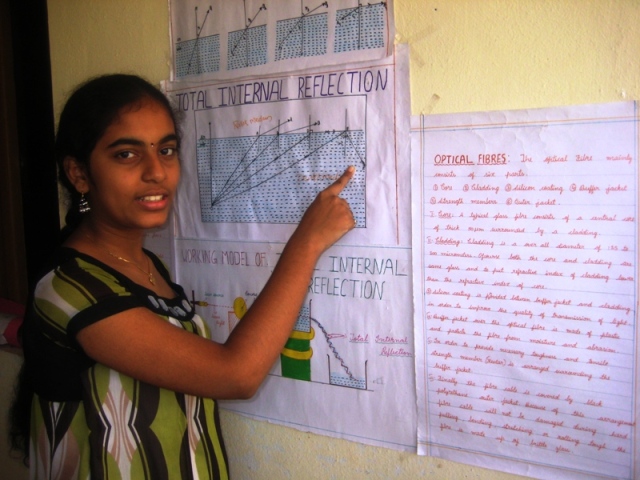 TOTAL INTERNAL REFLECTION
WORKING MODEL OF INTERNAL
REFLECTION
Total Internal
Reflection
OPTICAL FIBRES: The optical fibre mainly
consists of six parts.
① Core ② Cladding ③ silicon coating ④ Buffer jacket
⑤ strength members ⑥ Outer jacket.
Core: A typical glass fibre consists of a central core
of thick surrounded by a cladding.
Cladding: Cladding is a over all diameter of to
both the core and cladding
glass and to put refractive index of cladding lower
than the refractive index of core.
silicon coating is provided between buffer jacket and cladding
in order to improve the quality of transmission of light.
Buffer jacket over the optical fibre is made of plastic
and protects the fibre from moisture and abrasion.
In order to provide necessary toughness and tensile
strength member is arranged surrounding the
buffer jacket.
Finally the fibre cable is covered by black
outer jacket because of this arrangement
fibre cable will not be damaged during hard
pulling, bending, stretching or rolling
fibre is made up of glass